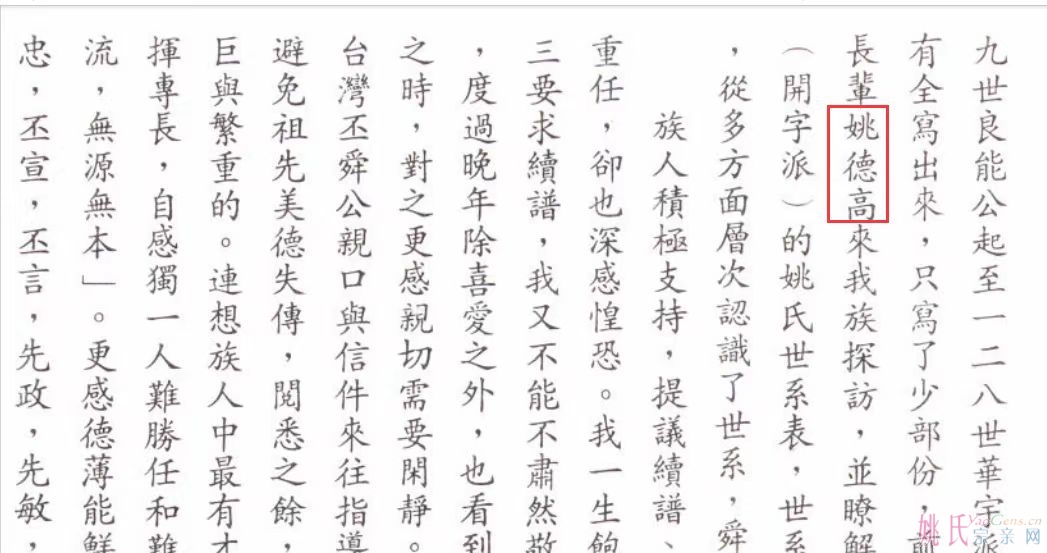 九世良能公起至一二八世華宇派
有全寫出來，只寫了少部份，前
長輩姚德高來我族探訪，並瞭解
（開字派）的姚氏世系表，世系
，從多方面層次認識了世系，舜
族人積極支持，提議續譜、
重任，卻也深感惶恐。我一生飽
三要求續譜，我又不能不肅然敬
，度過晚年除喜愛之外，也看到
之時，對之更感親切需要閑靜。
台灣丕舜公親口與信件來往指導
避免祖先美德失傳，閱悉之餘，
巨與繁重的。連想族人中最有才
揮專長，自感獨一人難勝任和難
流，無源無本」。更感德薄能鮮
忠，丕宣，丕言，先政，先敏，
姚氏YaoGens.cn
宗亲网